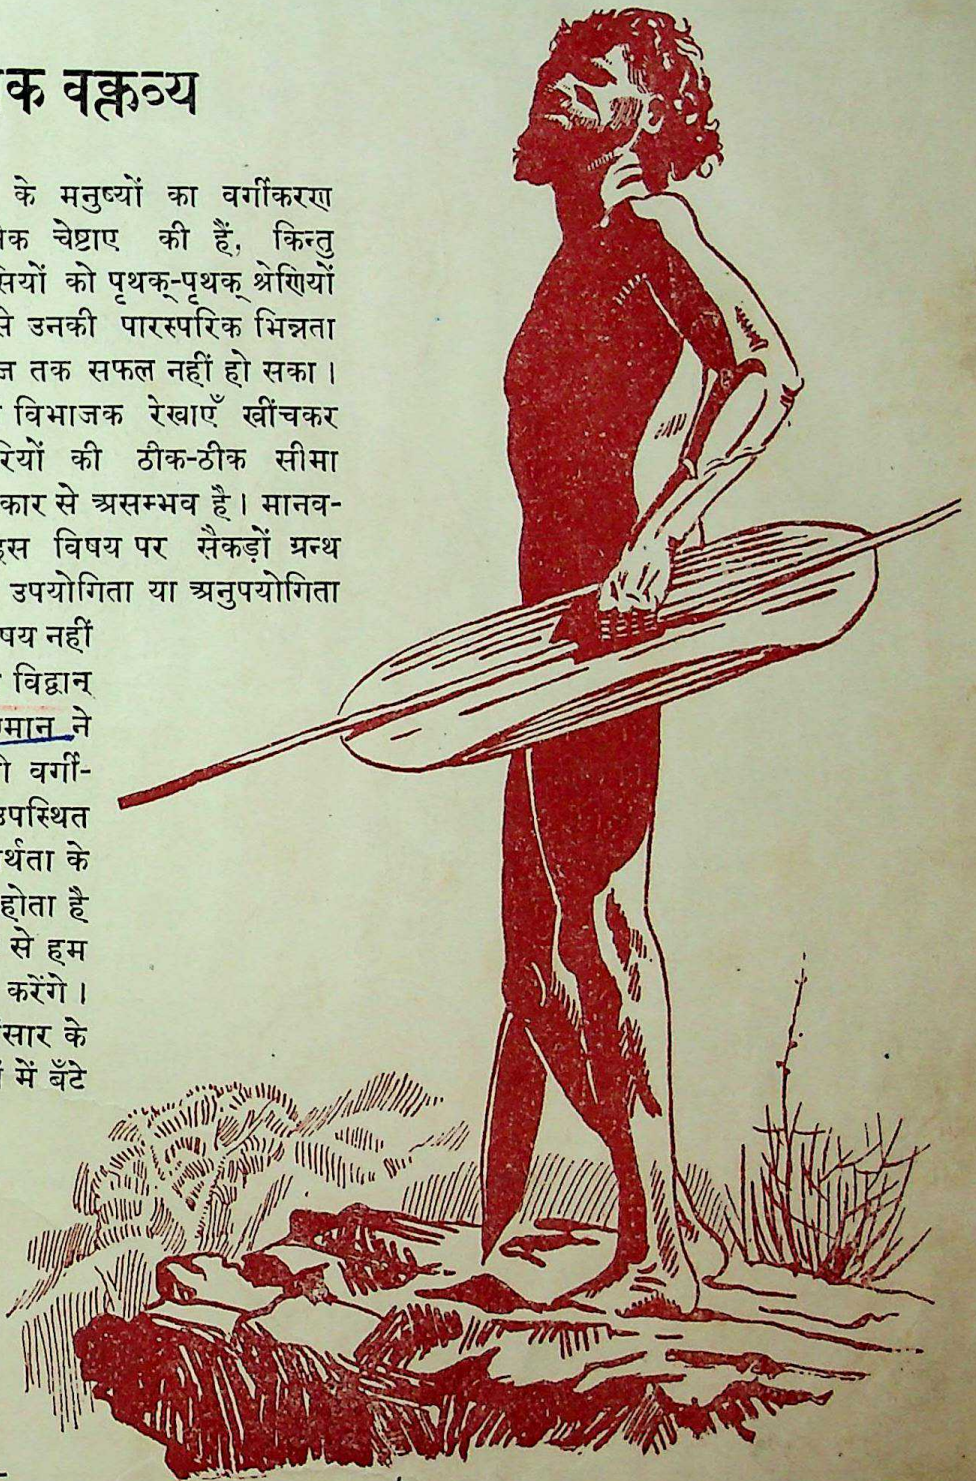 क वक्तव्य
के मनुष्यों का वर्गीकरण
ेक चेष्टाए की हैं, किन्तु
सियों को पृथक्-पृथक् श्रेणियों
से उनकी पारस्परिक भिन्नता
ज तक सफल नहीं हो सका।
विभाजक रेखाएँ खींचकर
रियों की ठीक-ठीक सीमा
कार से असम्भव है। मानव-
इस विषय पर सैकड़ों ग्रन्थ
उपयोगिता या अनुपयोगिता
षय नहीं
विद्वान्
मान ने
ी वर्गी-
उपस्थित
र्थता के
होता है
से हम
करेंगे।
ंसार के
ं में बँटे